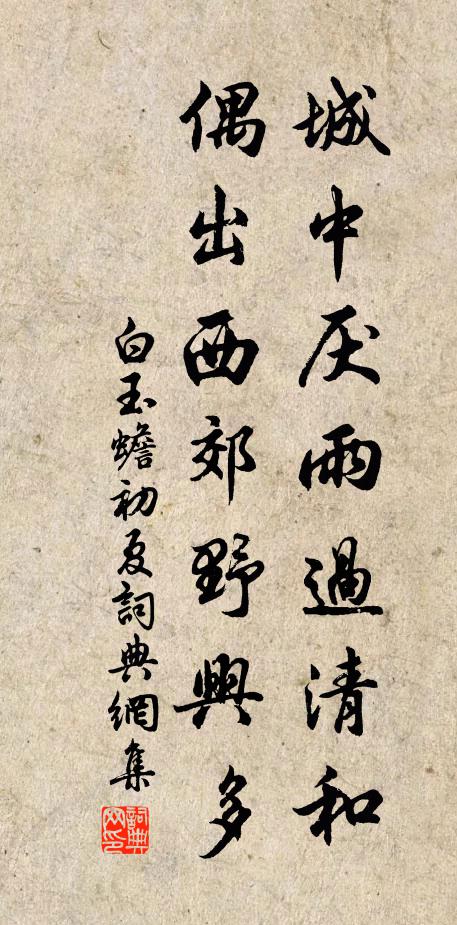 城中厌雨過清和
偶出西郊野興多
白玉蟾初夏詞典網集
詞典
网印